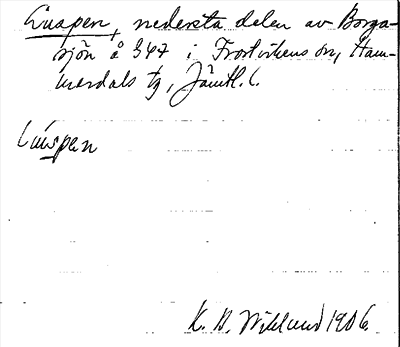 Linspen, nedersta delen av Borga-
sjön å 347 i Frostvikens sn, Ham-
merdals tg, Jämtl. l.
Linspen
K. B. Wiklund 1906